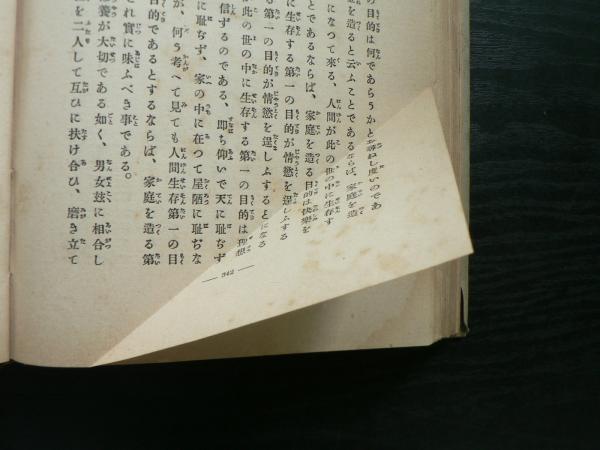 の目的は何であらうかと尋ねし度いのであ
を造ると云ふことであるならば、家庭を造
になつて來る、人間が此の世の中に生存す
とであるならば、家庭を造る目的は快樂を
に生存する第一の目的が情慾を逞しふする
る第一の目的が情慾を逞しふするとになる
が此の世の中に生存する第一の目的は
信ずるのである、即ち仰いで天に恥ぢず
に恥ぢず、家の中に在つて屋陋に恥ぢな
が、何う考へて見ても人間生存第一の目
目的であるとするならば、家庭を造る第
され實に味ふべき事である。
養が大切である如く、男女玆に相合し
を二人して互ひに扶け合ひ、磨き立て
— 342 —